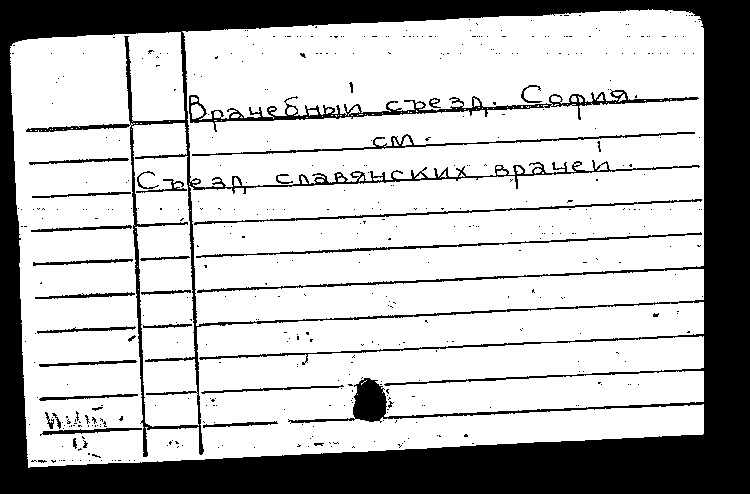 Врачебный съезд. София.
см.
Съезд славянских врачей.